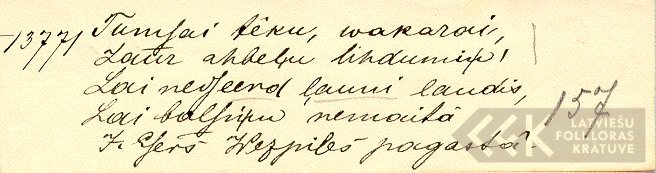 13771 Tumsai tēku, wakarai,
Zaur ahbeļu lihdumiņ!
Lai nedseerd ļauni laudis,
Lai balsiņu nemaitā
J. Ezerš Wezpils pagastā.
157
LATVIEŠU
FOLKLORAS
KRĀTUVE